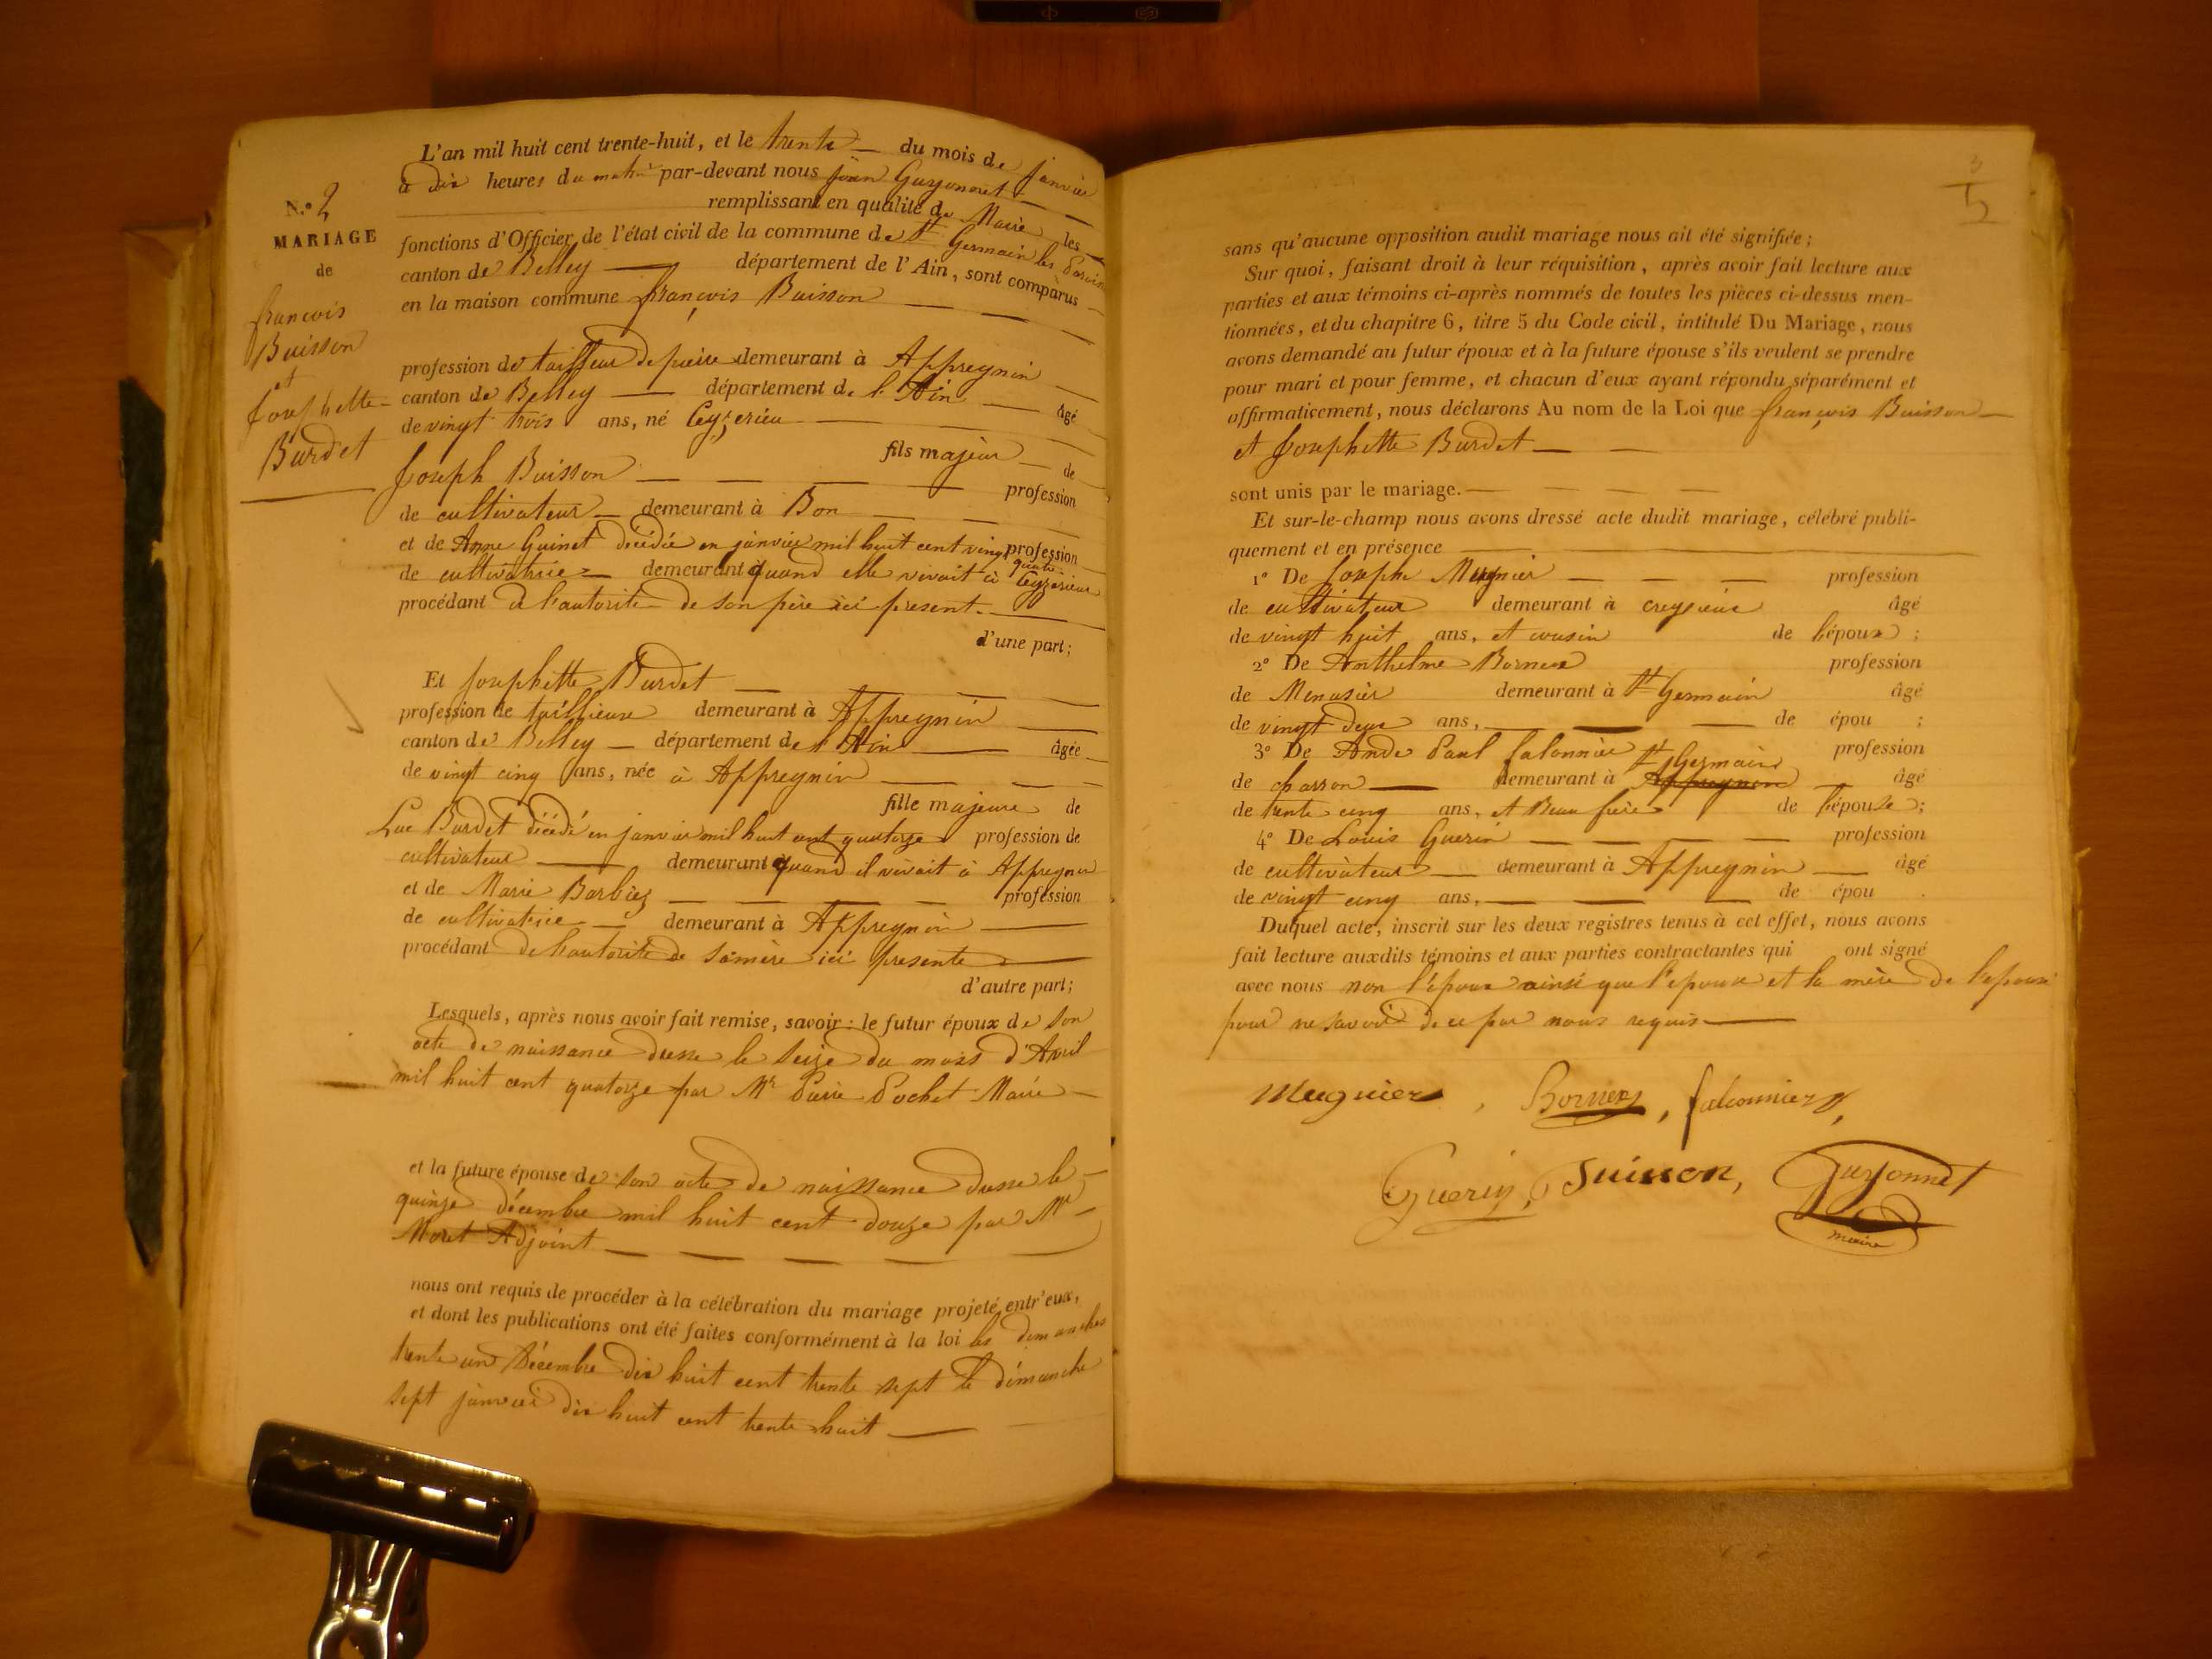 N.º 2
MARIAGE
de
françois
Buisson
et
Josephette
Burdet
L'an mil huit cent trente-huit, et le trente du mois de janvier
à dix heures du matin par-devant nous jean Guyonnet
remplissant en qualité de Maire les
fonctions d'Officier de l'état civil de la commune de St Germain les Paroisses
canton de Belley département de l'Ain, sont comparus
en la maison commune françois Buisson
profession de tailleur de pierre demeurant à Appregnin
canton de Belley département de l'Ain âgé
de vingt trois ans, né Ceyzerieu
fils majeur de
Joseph Buisson profession
de cultivateur demeurant à Bon
et de Anne Guinet décédée en janvier mil huit cent vingt quatre profession
de cultivatrice demeurant quand elle vivait à Ceyzerieux
procédant de l'autorité de son père ici present
d'une part;
Et Josephette Burdet
profession de taillieuse demeurant à Appregnin
canton de Belley département de l'Ain âgée
de vingt cinq ans, née à Appregnin
fille majeure de
Luc Burdet décédé en janvier mil huit cent quatorze profession de
cultivateur demeurant quand il vivait à Appregnin
et de Marie Barbiez profession
de cultivatrice demeurant à Appregnin
procédant de l'autorité de sa mère ici presente
d'autre part;
Lesquels, après nous avoir fait remise, savoir: le futur époux de son
acte de naissance dresse le seize du mois d'Avril
mil huit cent quatorze par Mr Pierre Pochet Maire
et la future épouse de son acte de naissance dresse le
quinze décembre mil huit cent douze par Mr
Moret Adjoint
nous ont requis de procéder à la célébration du mariage projeté entr'eux,
et dont les publications ont été faites conformément à la loi les dimanches
trente un décembre dix huit cent trente sept le dimanche
sept janvier dix huit cent trente huit
3
5
sans qu'aucune opposition audit mariage nous ait été signifiée;
Sur quoi, faisant droit à leur réquisition, après avoir fait lecture aux
parties et aux témoins ci-après nommés de toutes les pièces ci-dessus men-
tionnées, et du chapitre 6, titre 5 du Code civil, intitulé Du Mariage, nous
avons demandé au futur époux et à la future épouse s'ils veulent se prendre
pour mari et pour femme, et chacun d'eux ayant répondu séparément et
affirmativement, nous déclarons Au nom de la Loi que françois Buisson
et Josephette Burdet
sont unis par le mariage.
Et sur-le-champ nous avons dressé acte dudit mariage, célébré publi-
quement et en présence
1º De Joseph Mugnier profession
de cultivateur demeurant à creyzieu âgé
de vingt huit ans, et cousin de l'époux;
2º De Anthelme Bornier profession
de Menusier demeurant à St Germain âgé
de vingt deux ans, de épou ;
3º De André Paul falonnier St Germain profession
de charron demeurant à Appregnin âgé
de trente cinq ans, et Beau frère de l'épouse;
4º De Louis Guerin profession
de cultivateur demeurant à Appregnin âgé
de vingt cinq ans, de épou .
Duquel acte, inscrit sur les deux registres tenus à cet effet, nous avons
fait lecture auxdits témoins et aux parties contractantes qui ont signé
avec nous non l'époux ainsi que l'epouse et la mère de l'epouse
pour ne savoir de ce par nous requis
Mugnier, Bornier, falconnier,
Guerin, Buisson, Guyonnet
maire